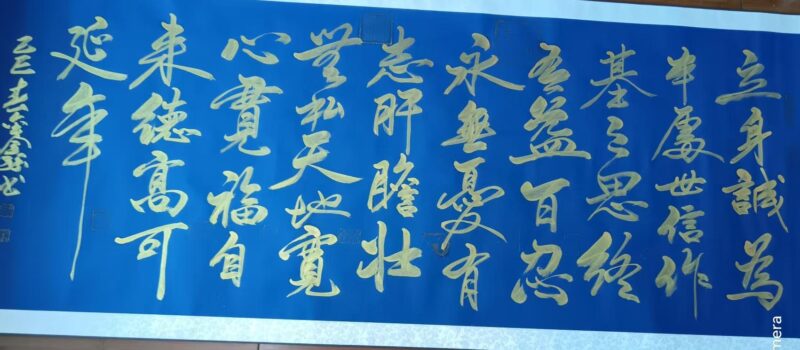 立身誠為
本處世信作
基三思終
有益百忍
永無憂有
志肝膽壯
無私天地寬
心寬福自
來德高可
延年
乙巳春
書
mera